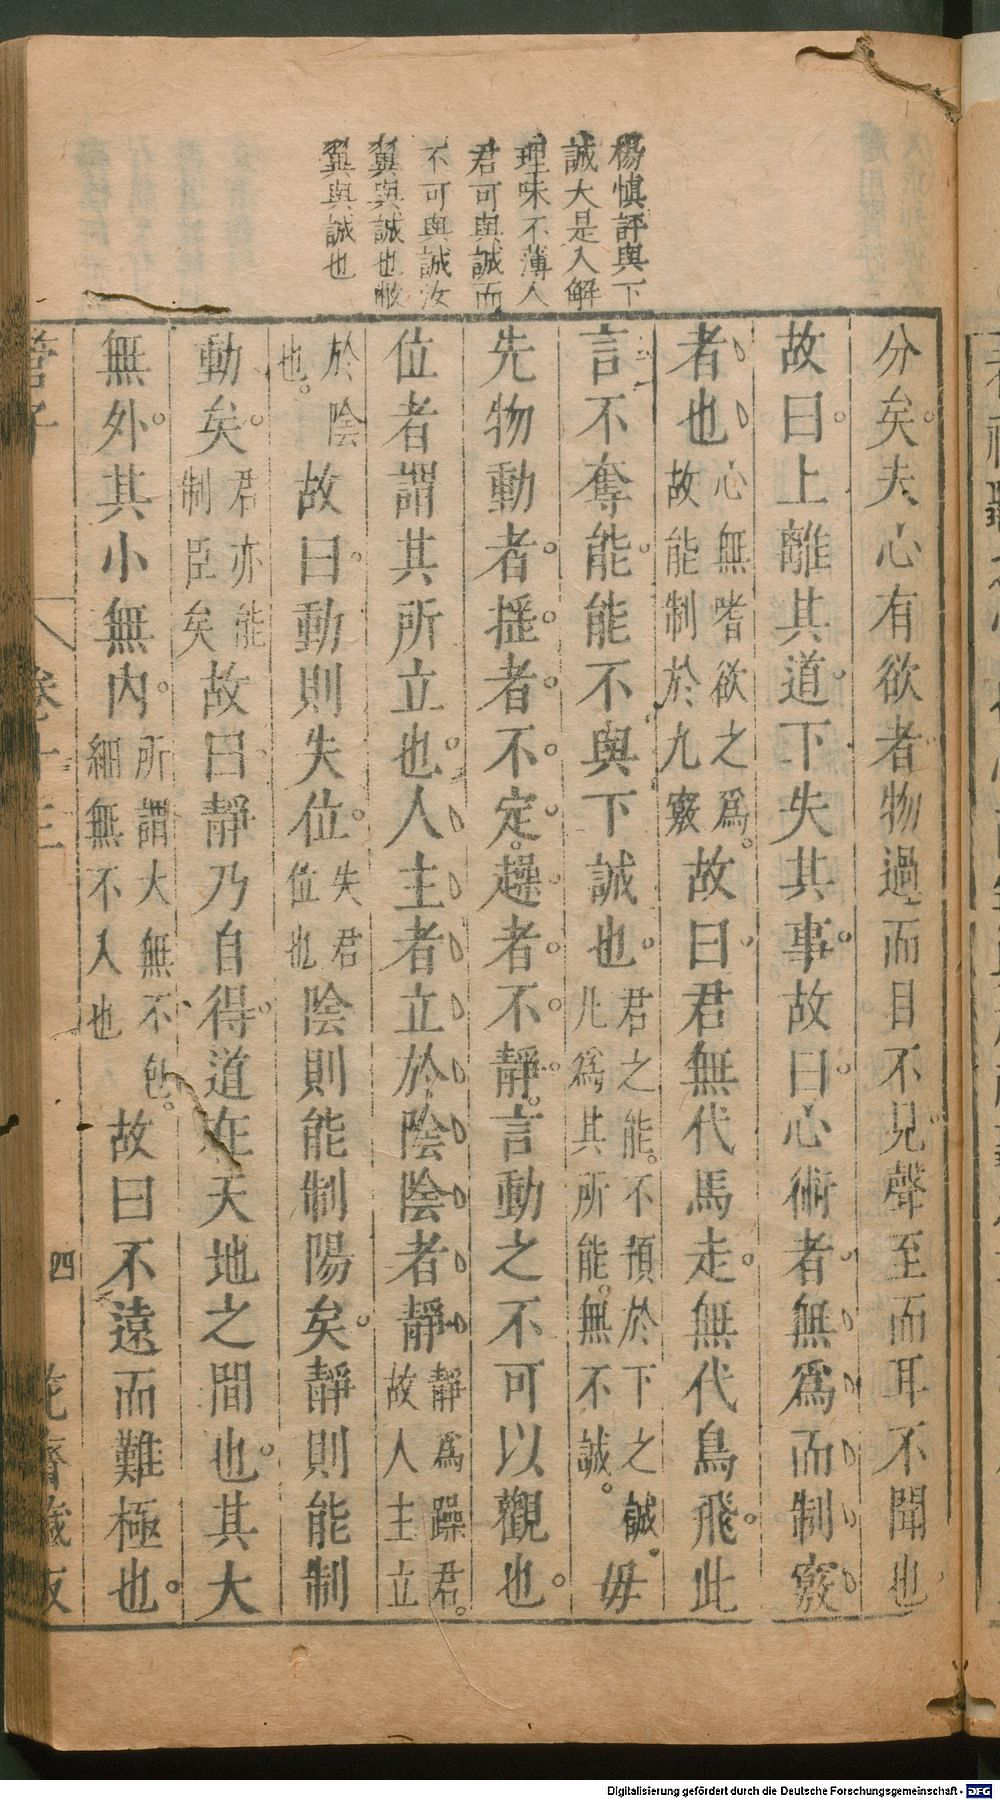 楊慎評與下
誠大是入解
理味不薄人
君可與誠而
不可與誠汝
與誠也
與誠也
分矣夫心有欲者物過而目不見聲至而耳不聞也
故曰上離其道下失其事故曰心術者無為而制竅
者也心無嗜欲之為故能制於九竅故曰君無代馬走無代鳥飛此
言不奪能能不與下誠也君之能不預於下之誠凡為其所能無不誠毋
先物動者搖者不定趮者不靜言動之不可以觀也
位者謂其所立也人主者立於陰陰者靜靜為躁君故人主立
於陰也故曰動則失位失君位也陰則能制陽矣靜則能制
動矣君亦能制臣矣故曰靜乃自得道在天地之間也其大
無外其小無內所謂大無不包細無不入也故曰不遠而難極也
管子
卷十三
四
花齋藏板
Digitalisierung gefördert durch die Deutsche Forschungsgemeinschaft - DFG